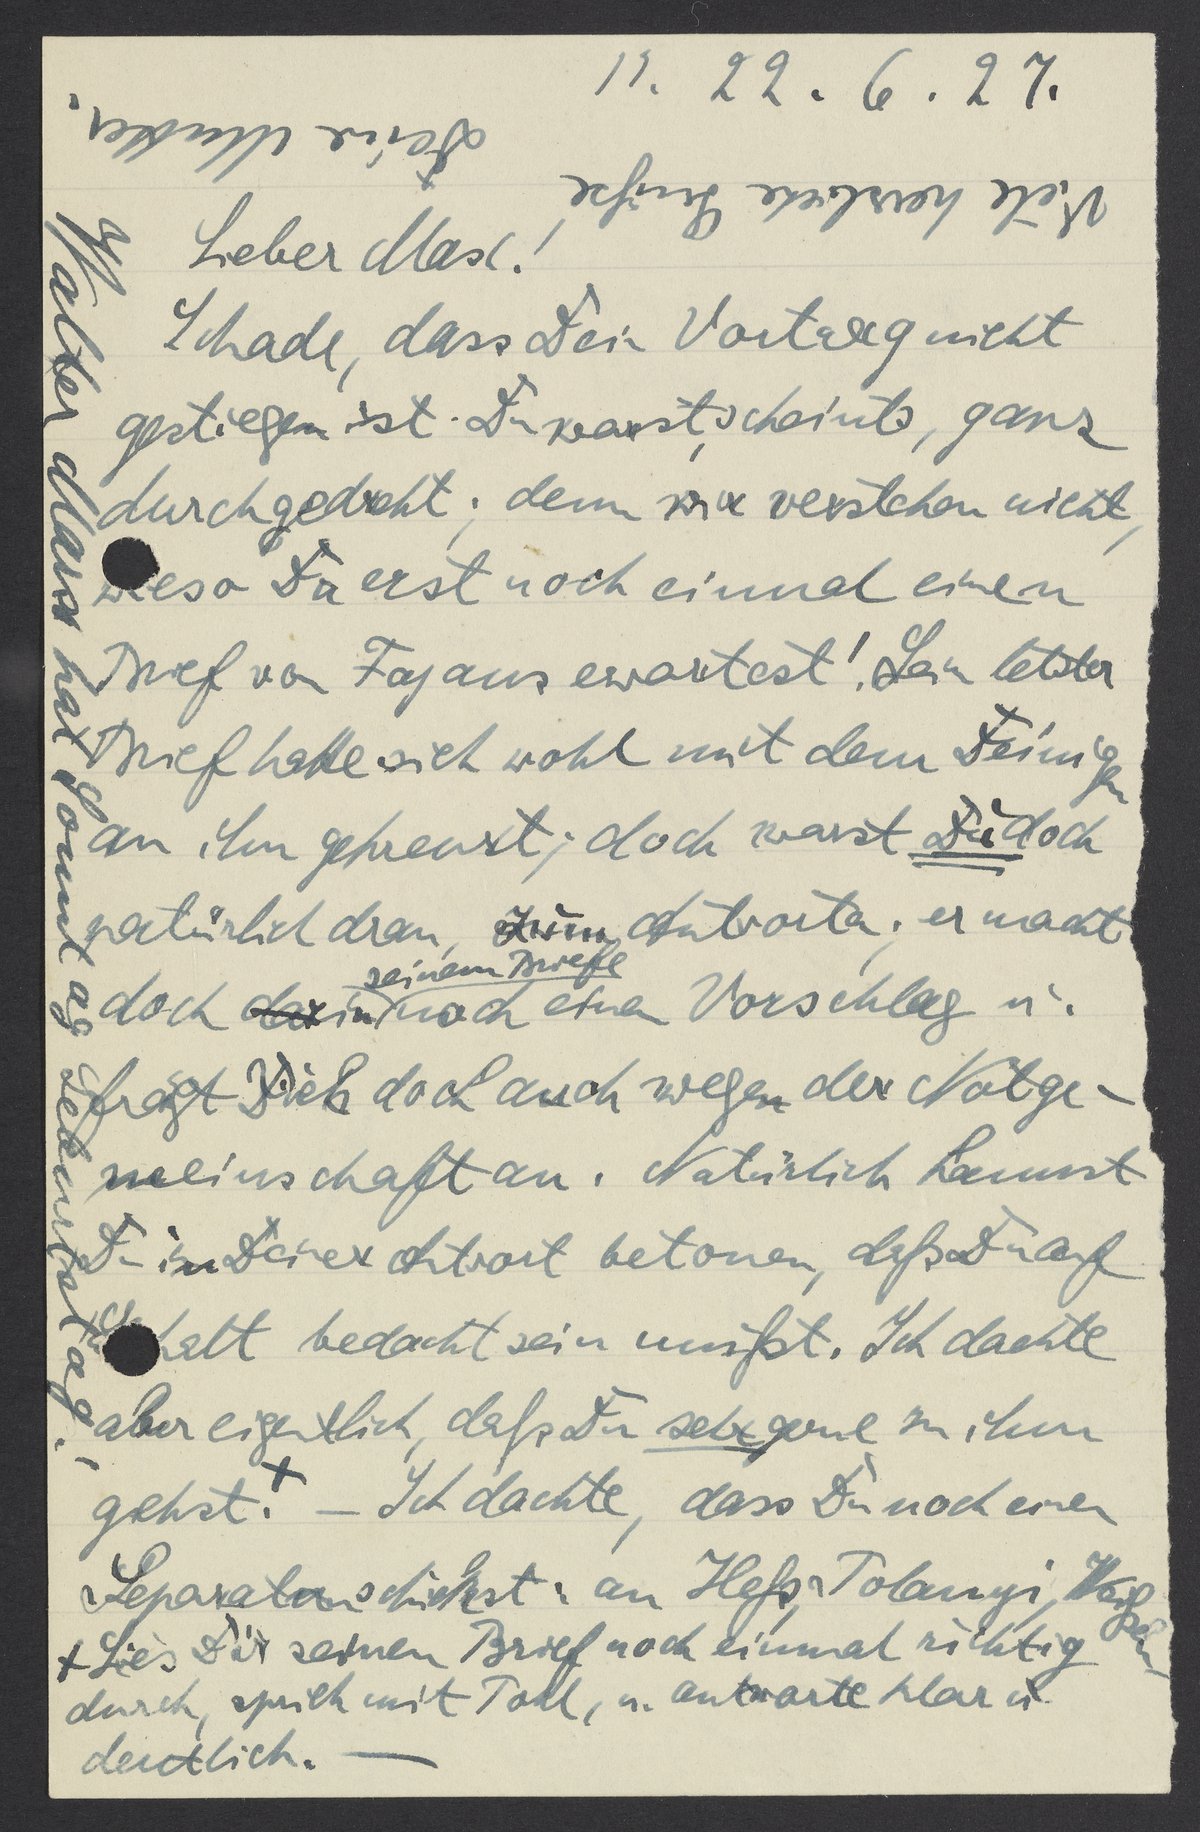 22. 6. 27.
Lieber Max!
Schade, dass Dein Vortrag nicht
gestiegen ist. Du warst, scheints, ganz
durchgedreht; denn wir verstehen nicht,
wieso Du erst noch einmal einen
Brief von Fajans erwartest! Sein letzter
Brief hatte sich wohl mit dem Deinigen
an ihn gekreuzt; doch warst Du doch
natürlich dran, zum Antworten; er macht
doch darin seinem Briefe noch einen Vorschlag u.
frägt Dich doch auch wegen der Notge-
meinschaft an. Natürlich kannst
Du in Deiner Antwort betonen, daß Du auf
Gehalt bedacht sein mußt. Ich dachte
aber eigentlich, daß Du sehr gerne zu ihm
gehst. + — Ich dachte, dass Du noch einen
Separata schickst: an Heß, Polanyi,
+ Lies Dir seinen Brief noch einmal richtig
durch, sprich mit Pohl, u. antworte klar u.
deutlich. —
Walter Marx hat Sonntag Geburtstag. –
Viele herzliche Grüße
Deine Mutter.